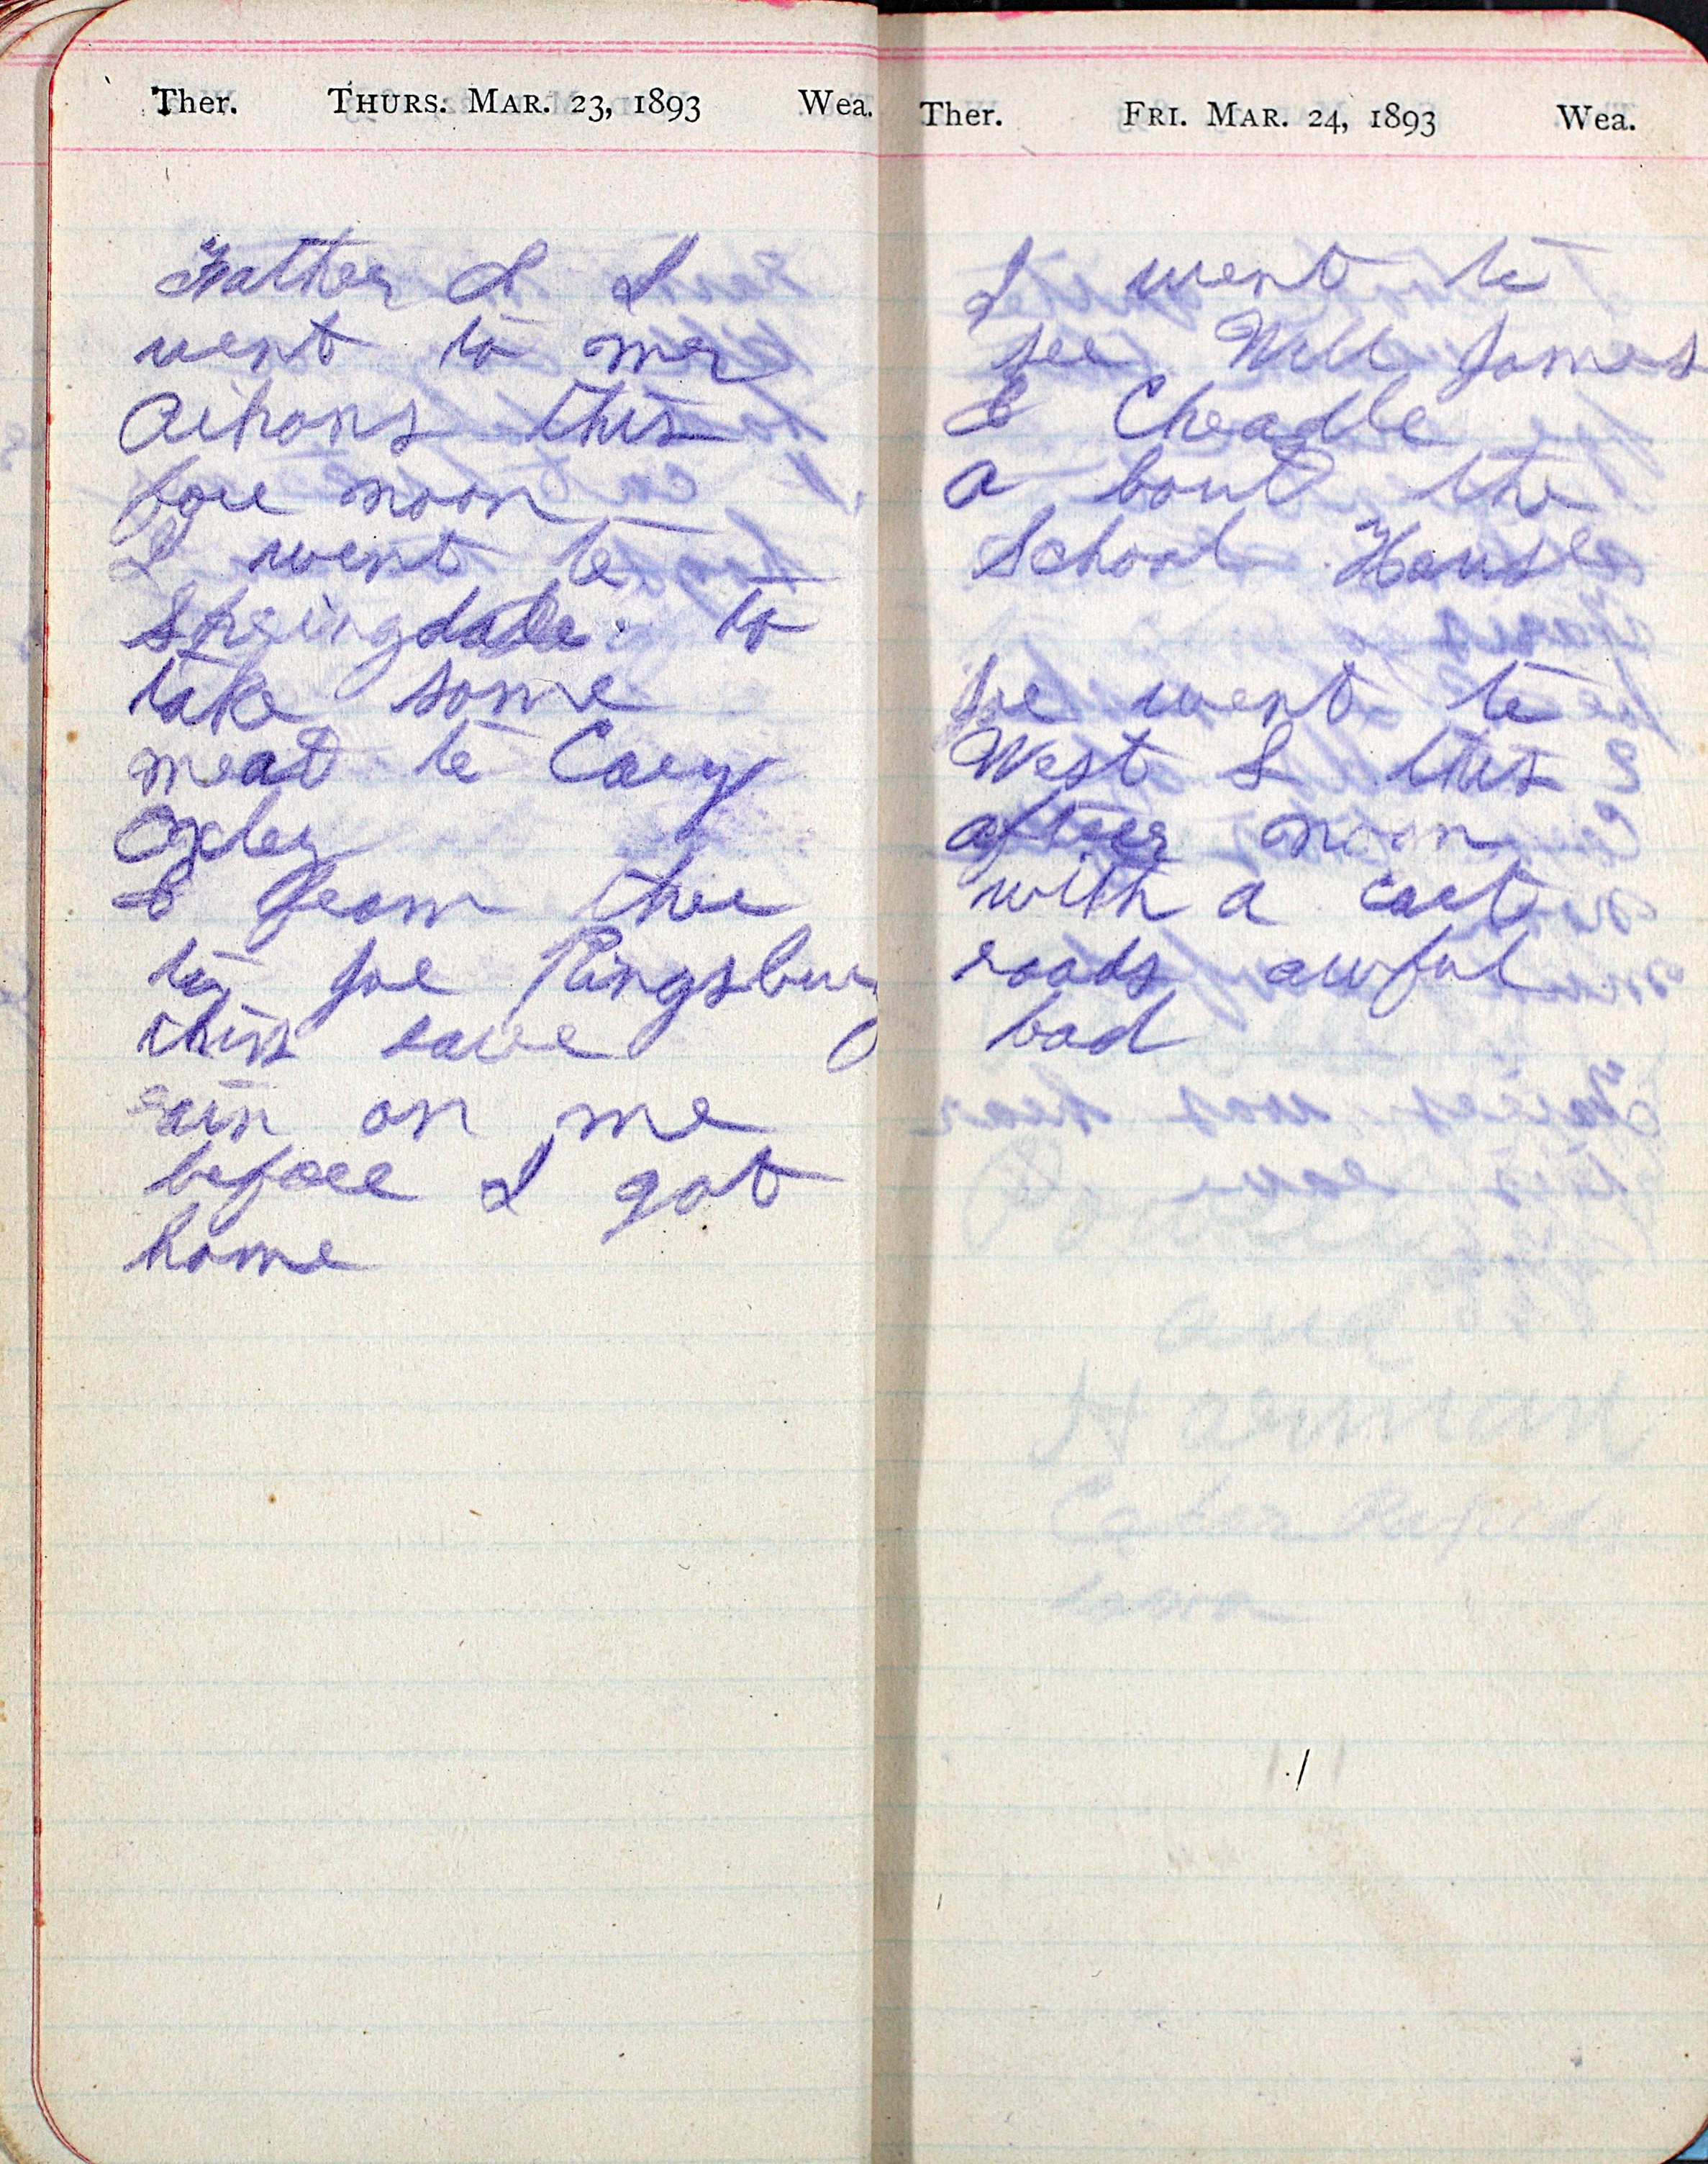 Ther. THURS. MAR. 23, 1893 Wea.
Father & I
went to mr
this
fore noon
I went to
Springdale to
take some
meat to Cary
Oxley
& from thee
to Joe Pingsbury
this eave
rain on me
before I got
home
Ther. FRI. MAR. 24, 1893 Wea.
I went to
see Will James
& Cheadle
a bout the
School House
we went to
West L this
after noon
with a cart
roads awful
bad
and
Harman
Iowa